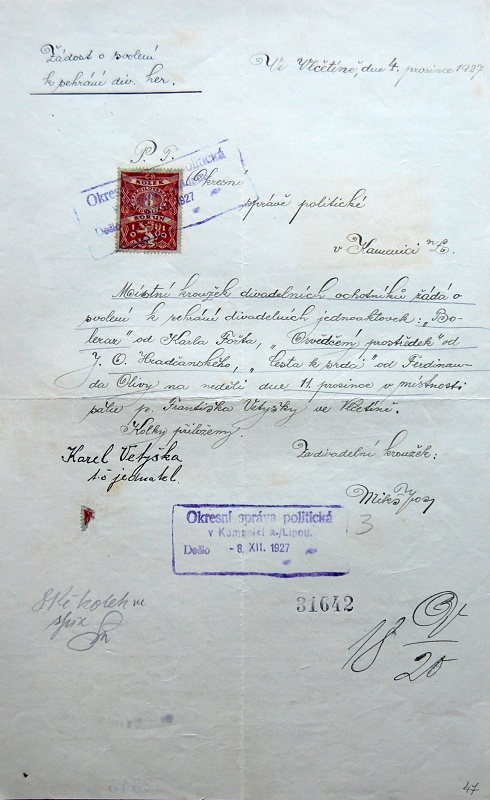 Žádost o svolení
k sehrání div. her.
Ve Včetíně, dne 4. prosince 1927
P. T.
Okresní
správě politické
v Kamenici n/L.
KOLEK
8
KORUN
1919
Okresní správa politická
Došlo 1927
Místní kroužek divadelních ochotníků žádá o
svolení k sehrání divadelních jednoaktovek: „Bo-
leraz" od Karla Fořta, „Osvědčený prostředek" od
J. O. Hradčanského, „Cesta k srdci" od Ferdinan-
da Olivy na neděli dne 11. prosince v místnosti
sálu p. Františka Vetyšky ve Včetíně.
Kolky přiloženy.
Karel Vetyška
t.č. jednatel.
Za divadelní kroužek:
Mikš Jos.
Okresní správa politická
v Kamenici n./Lipou.
Došlo - 8. XII. 1927
3
31642
8 Kč kolek ve
spix
18
20
47